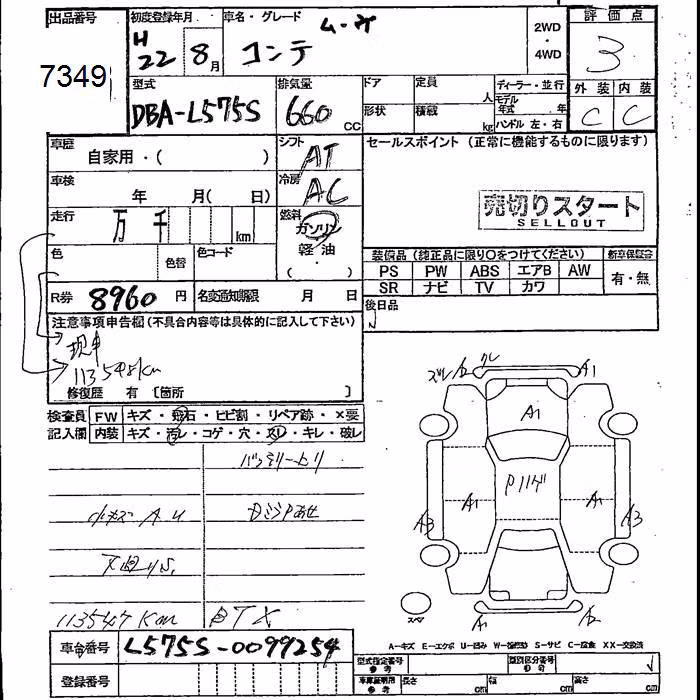 出品番号 初度登録年月 車名・グレード 評価点
7349 H22 8月 ムーヴ コンテ 2WD・4WD 3
型式 排気量 ドア 定員 人 ディーラー・並行 外装 内装
DBA-L575S 660cc 形状 積載 kg モデル年式 年 ハンドル 左・右 C C
車歴 自家用・( ) シフト AT セールスポイント (正常に機能するものに限ります)
車検 年 月( 日) 冷房 AC
走行 万 千 km 燃料 ガソリン 軽油 ( ・ )
売切りスタート
SELLOUT
色 色替 色コード
装備品 (純正品に限り○をつけてください) 新車保証書
PS PW ABS エアB AW 有・無
SR ナビ TV カワ
R券 8960円 名変通知期限 月 日 後日品
注意事項申告欄 (不具合内容等は具体的に記入して下さい)
現車
113548km
修復歴 有 〔箇所 〕
検査員 FW キズ・飛石・ヒビ割・リペア跡・×要
記入欄 内装 キズ・汚レ・コゲ・穴・スレ・キレ・破レ
小キズ A U
113547km
A2 A1
A1
A3 A1 A1 A3
A1 A2
スペア
A-キズ E-エクボ U-凹み S-サビ C-腐食 XX-交換済
車台番号 L575S-0099254
登録番号
型式指定番号 類別区分番号
長さ cm 幅 cm 高さ cm